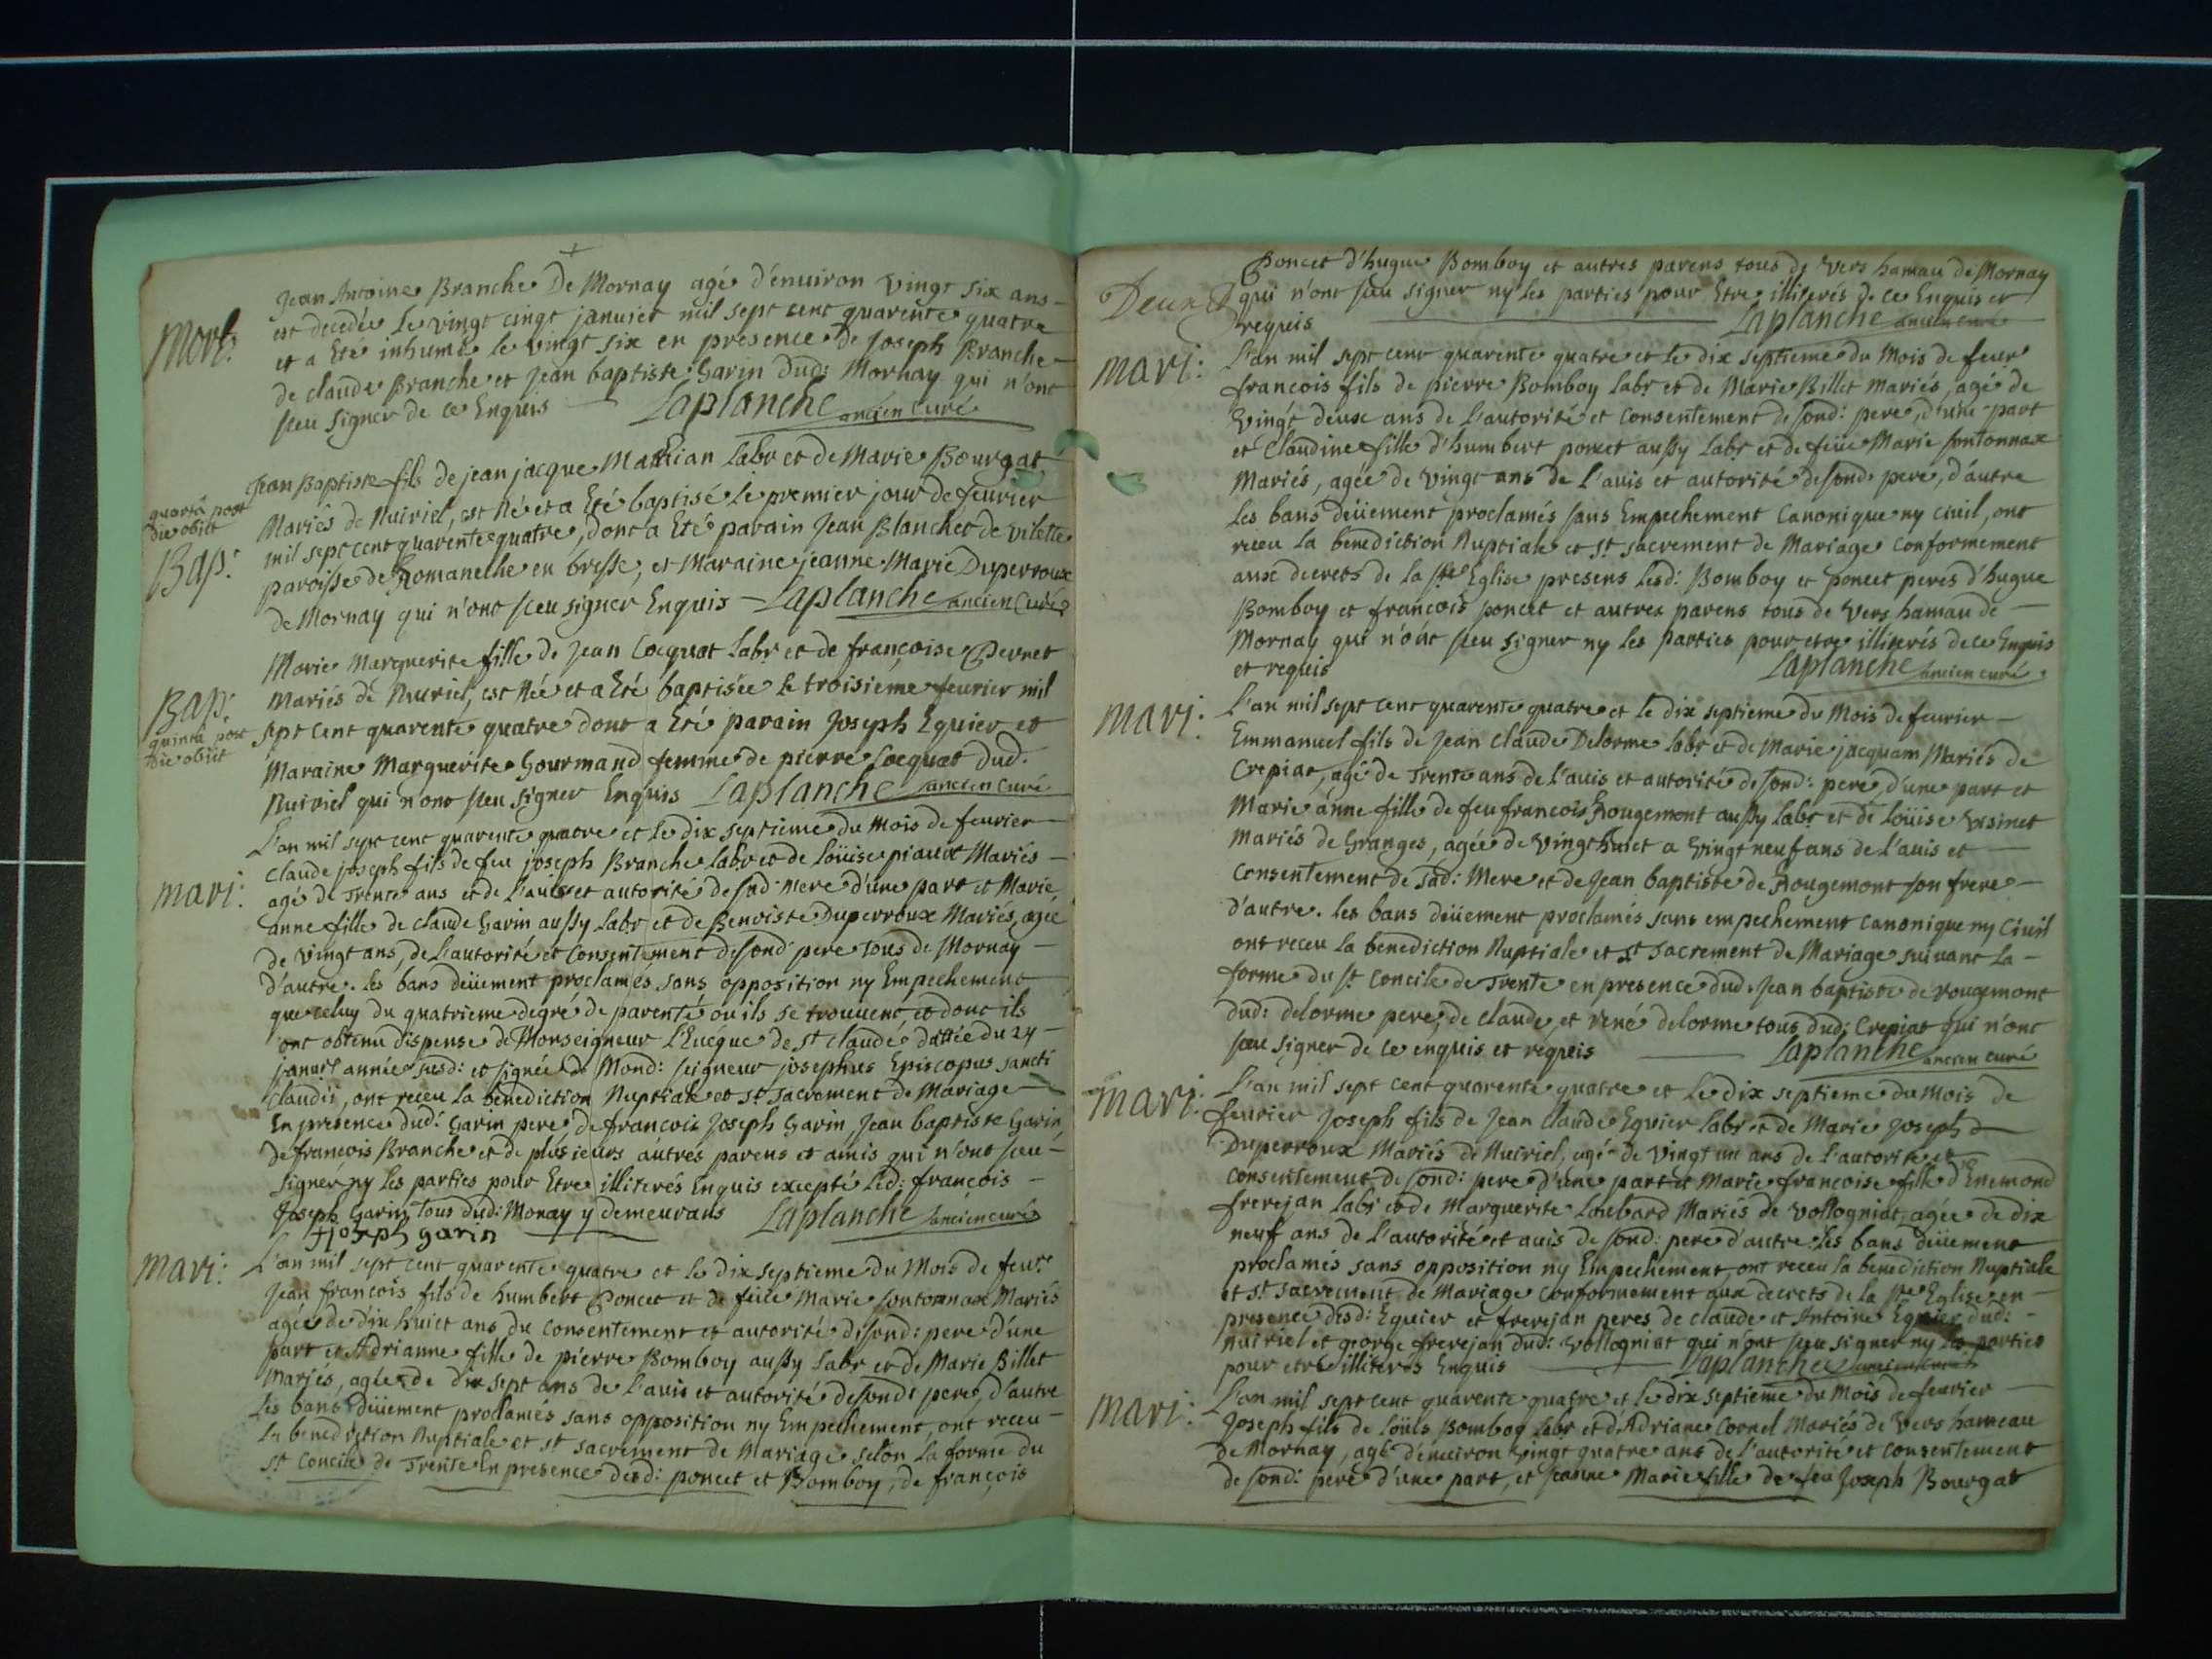 Mort:
Jean Antoine Branche De Mornay agé d'enuiron vingt six ans
est decedée le vingt cingt januier mil sept cent quarente quatre
et a Eté inhumé le vingt six en presence de Joseph Branche
de claude Branche et Jean baptiste Garin dud: Mornay qui n'ont
sceu signer de ce Enquis Laplanche ancien curé
quarta post
die obiit
Bap:
Jean Baptiste fils de jean jacque Mathian Labr et de Marie Bourgat
Mariés de Nuiriel, est Né et a Eté baptisé le premier jour de feurier
mil sept cent quarente quatre, dont a Eté parain Jean Blanchet de vilette
paroisse de Romaneche en bresse, et Maraine jeanne Marie Duperroux
de Mornay qui n'ont sceu signer Enquis Laplanche ancien Curé
Bap:
quinta post
die obiit
Marie Marguerite fille de Jean Cocquat Labr et de françoise Pernet
Mariés de Nuiriel, est Née et a Eté baptisée le troisieme feurier mil
sept cent quarente quatre dont a Eté parain Joseph Eguier et
Maraine Marguerite Gourmand femme de pierre Cocquat dud.
Nuiriel qui n'ont sceu signer Enquis Laplanche ancien curé
mari:
L'an mil sept cent quarente quatre et le dix septieme du Mois de feurier
claude joseph fils de feu joseph Branche labr et de Loüise piauot Mariés
agé de Trente ans et de l'auis et autorité de sad. Mere d'une part et Marie
anne fille de claude Garin aussy Labr et de Benoiste Duperroux Mariés, agée
de vingt ans, de l'autorité et Consentement de sond pere tous de Mornay
d'autre. les bans deüement proclamés sans opposition ny Empechement
que celuy du quatrieme degré de parenté ou ils se trouuent et dont ils
ont obtenu dispense de Monseigneur l'Euéque de St claude dattée du 24
januier année susd: et signée de Mond: seigneur josephus Episcopus sancti
claudii, ont receu la benediction Nuptiale et St sacrement de Mariage
En presence dud: Garin pere de francois Joseph Garin, Jean baptiste Garin,
de francois Branche et de plusieurs autres parens et amis qui n'ont sceu
signer ny les parties pour Etre illiterés Enquis excepté led: francois
Joseph Garin, tous dud: Monay y demeurans Laplanche ancien curé
f joseph garin
mari:
L'an mil sept cent quarente quatre et le dix septieme du Mois de feur
Jean francois fils de humbert Poncet et de feüe Marie sontonnax Mariés
agée de dix huict ans du consentement et autorité de sond: pere d'une
part et Adrianne fille de pierre Bomboy aussy Labr et de Marie Billet
Mariés, agée de dix sept ans de l'auis et autorité de sond: pere, d'autre
les bans deüement proclamés sans opposition ny Empechement, ont receu
la benediction Nuptiale et St sacrement de Mariage selon la forme du
St Concile de Trente En presence desd: poncet et Bomboy, de françois
Poncet d'hugue Bomboy et autres parens tous de Vers hamau de Mornay
qui n'ont sceu signer ny les parties pour Etre illiterés de ce Enquis et
requis Laplanche ancien curé
mari:
L'an mil sept cent quarente quatre et le dix septieme du Mois de feur
francois fils de pierre Bomboy labr et de Marie Billet mariés, agé de
vingt deux ans de l'autorité et consentement de sond: pere, d'une part
et Claudine fille d'humbert poncet aussy labr et de feüe Marie sontonnax
Mariés, agée de vingt ans de l'auis et autorité de sond: pere, d'autre
Les bans deüement proclamés sans Empechement Canonique ny ciuil, ont
receu la benediction Nuptiale et St sacrement de Mariage conformement
aux decrets de la ste Eglise presens lesd: Bomboy et poncet peres d'hugue
Bomboy et francois poncet et autres parens tous de Vers hamau de
Mornay qui n'ont sceu signer ny les parties pour etre illiterés de ce Enquis
et requis Laplanche ancien curé
mari:
L'an mil sept cent quarente quatre et le dix septieme du Mois de feurier
Emmanuel fils de Jean claude Delorme labr et de Marie jacquam Mariés de
Crepiat, agé de Trente ans de l'auis et autorité de sond: pere, d'une part et
Marie anne fille de feu francois Rougemont aussy labr et de loüise Vesinet
mariés de Granges, agée de vingt huict a vingt neuf ans de l'auis et
Consentement de sad: Mere et de Jean baptiste de Rougemont son frere
d'autre. les bans deüement proclamés sans empechement canonique ny Ciuil
ont receu la benediction Nuptiale et St sacrement de Mariage suiuant la
forme du St Concile de Trente en presence dud. Jean baptiste de rougemont
dud: delorme pere, de claude et rené delorme tous dud: Crepiat qui n'ont
sceu signer de ce enquis et requis Laplanche ancien curé
mari:
L'an mil sept cent quarente quatre et le dix septieme du Mois de
feurier Joseph fils de Jean claude Eguier labr et de Marie Joseph
Duperroux Mariés de Nuiriel, agé de vingt un ans de l'autorité et
consentement de sond: pere d'une part et Marie francoise fille d'Enemond
frerejan labr et de Marguerite Loubard Mariés de vollogniat, agée de dix
neuf ans de l'autorité et auis de sond: pere d'autre. les bans deüement
proclamés sans opposition ny Empechement, ont receu la benediction Nuptiale
et St sacrement de Mariage conformement aux decrets de la ste Eglise en
presence desd: Eguier et frerejan peres de claude et Antoine Eguier dud:
nuiriel et george frerejan dud: vollogniat qui n'ont sceu signer ny les parties
pour etre illiterés Enquis Laplanche ancien curé
mari:
L'an mil sept cent quarente quatre et le dix septieme du Mois de feurier
Joseph fils de loüis Bomboy labr et d'Adriane Cornel Mariés de Vers hameau
de Mornay, agé d'enuiron vingt quatre ans de l'autorité et consentement
de sond: pere d'une part, et jeanne Marie fille de feu Joseph Bourgat